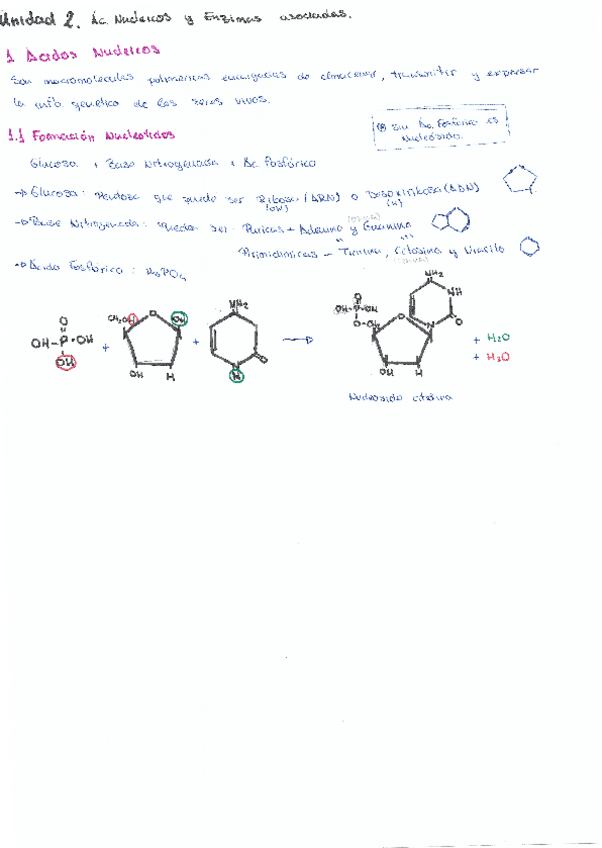 Unidad 2. Ác. Nucleicos y Enzimas asociadas.
1 Ácidos Nucleicos
Son macromoléculas poliméricas encargadas de almacenar, transmitir y expresar
la info. genética de los seres vivos.
⊛ Sin Ác. Fosfórico es
Nucleósido.
1.1 Formación Nucleótidos
Glucosa + Base Nitrogenada + Ác. Fosfórico
→ Glucosa: Pentosa que puede ser Ribosa (ARN) o Desoxirribosa (ADN)
(OH) (H)
→ Base Nitrogenada: pueden ser: Púricas - Adenina y Guanina
Pirimidínicas - Timina, Citosina y Uracilo
→ Ácido Fosfórico: H₃PO₄
O
OH-P-OH
OH
+
CH₂OH
O
OH
OH
H
+
NH₂
N
O
N
H
→
O
OH-P-OH
O-CH₂
O
OH
H
NH₂
NH
O
N
+ H₂O
+ H₂O